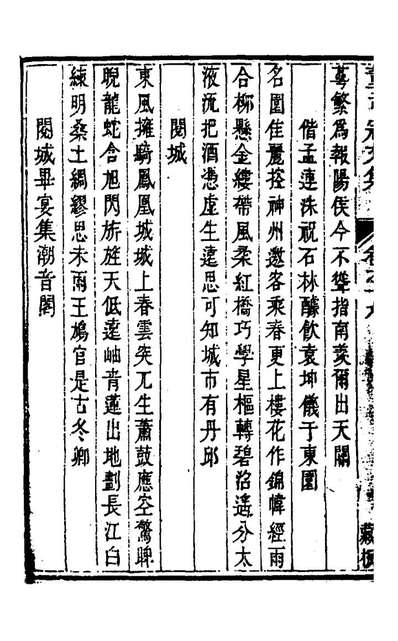 蕚繁爲報陽侯今不聳指南羡爾出天閽
偕孟連洙祝石林釀飲袁坤儀于東園
名園佳麗控神州邀客乘春更上樓花作錦幃經雨
合栁懸金縷帶風柔紅橋巧學星樞轉碧沼遥分太
液流把酒憑虚生遠思可知城市有丹邱
閱城
東風擁騎鳳凰城城上春雲突兀生蕭鼓應空驚睥
睨龍蛇合旭閃旂旌天低遠岫青蓮出地劃長江白
練明桑土綢繆思未雨王鳩官是古冬卿
閱城畢宴集潮音閣